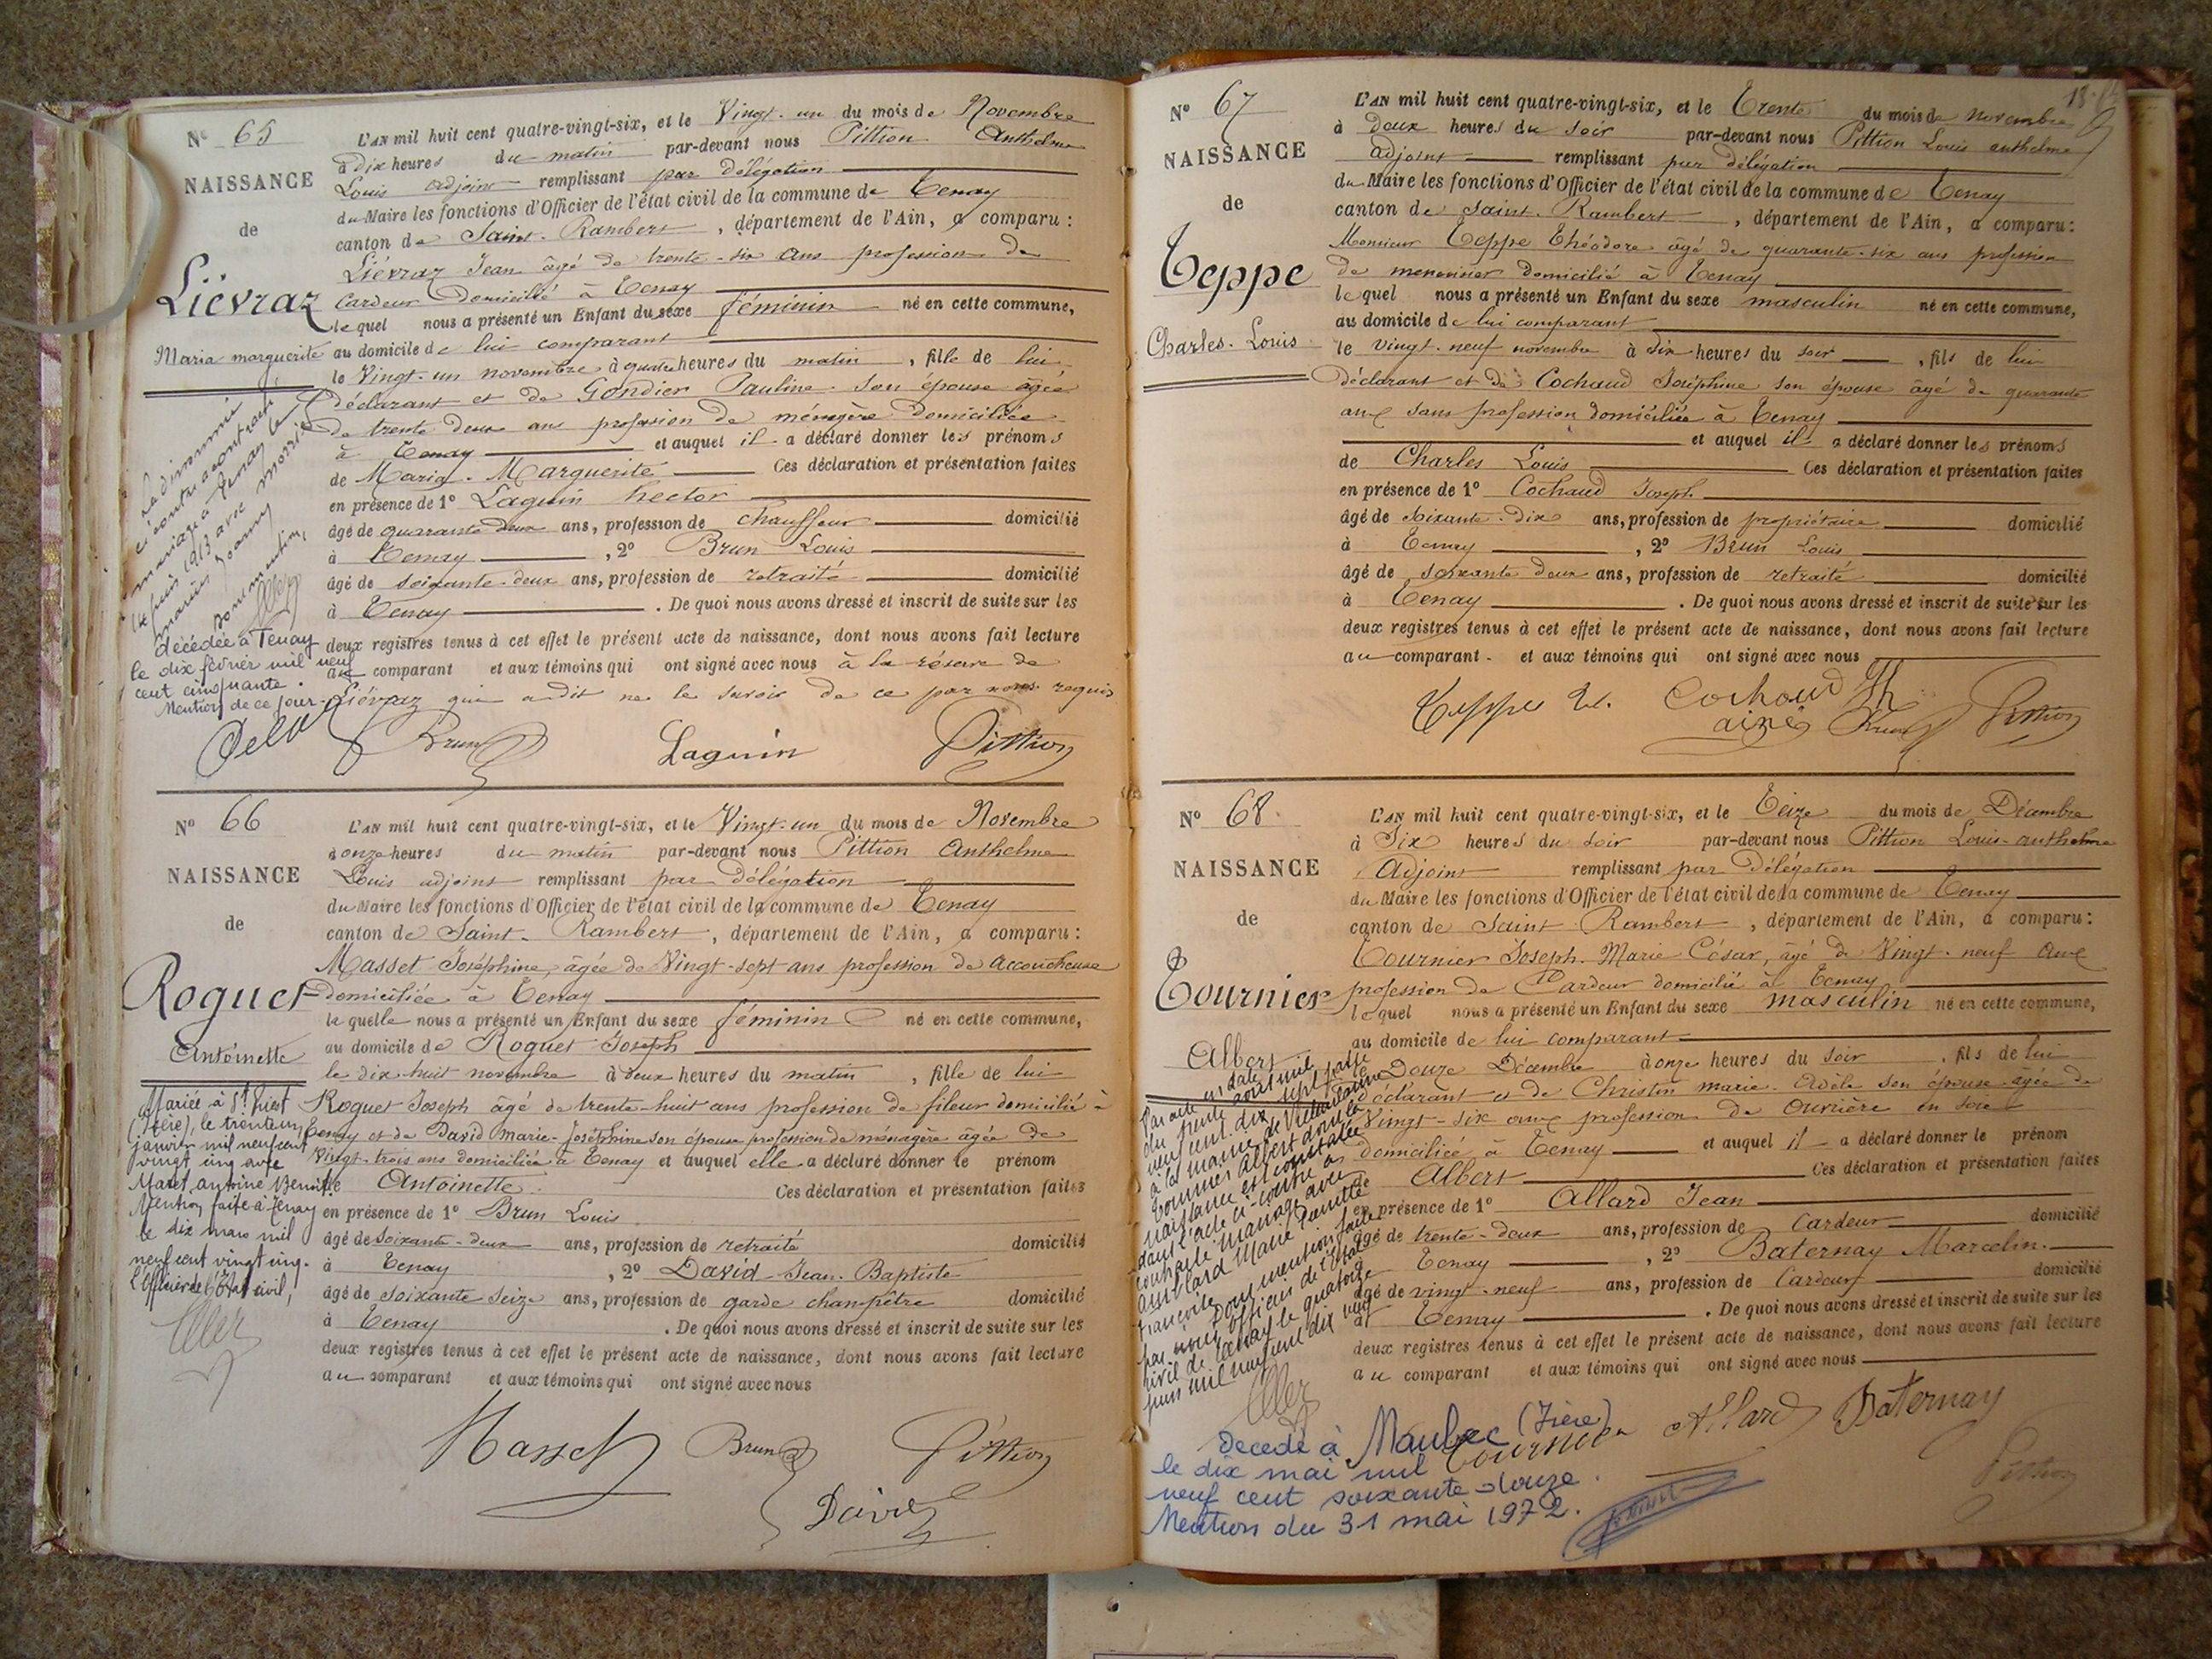 N° 65
NAISSANCE
de
Liévraz
Maria marguerite
L'AN mil huit cent quatre-vingt-six, et le Vingt-un du mois de Novembre
à dix heures du matin par-devant nous Pittion Anthelme
Louis adjoint remplissant par délégation
du Maire les fonctions d'Officier de l'état civil de la commune de Tenay
canton de Saint-Rambert, département de l'Ain, a comparu :
Liévraz Jean âgé de trente-six ans profession de
cardeur domicilié à Tenay
lequel nous a présenté un Enfant du sexe féminin né en cette commune,
au domicile de lui comparant
le Vingt-un novembre à quatre heures du matin, fille de lui
déclarant et de Gondier Pauline son épouse âgée
de trente deux ans profession de ménagère domiciliée
à Tenay et auquel il a déclaré donner les prénoms
de Maria-Marguerite Ces déclaration et présentation faites
en présence de 1° Laguin hector
âgé de quarante deux ans, profession de chauffeur domicilié
à Tenay, 2° Brun Louis
âgé de soixante-deux ans, profession de retraité domicilié
à Tenay. De quoi nous avons dressé et inscrit de suite sur les
deux registres tenus à cet effet le présent acte de naissance, dont nous avons fait lecture
au comparant et aux témoins qui ont signé avec nous à la réserve de
Liévraz qui a dit ne le savoir de ce par nous requis
La dénommée
ci contre a contracté
mariage à Tenay le
14 juin 1913 avec
marius Joanny
Dont mention,
décédée à Tenay
le dix février mil neuf
cent cinquante.
Mention de ce jour.
Brun Laguin Pittion
N° 66
NAISSANCE
de
Roguet
Antoinette
L'AN mil huit cent quatre-vingt-six, et le Vingt-un du mois de Novembre
à onze heures du matin par-devant nous Pittion Anthelme
Louis adjoint remplissant par délégation
du Maire les fonctions d'Officier de l'état civil de la commune de Tenay
canton de Saint-Rambert, département de l'Ain, a comparu :
Masset Joséphine, âgée de Vingt-sept ans profession de accoucheuse
domiciliée à Tenay
laquelle nous a présenté un Enfant du sexe féminin né en cette commune,
au domicile de Roguet Joseph
le dix-huit novembre à deux heures du matin, fille de lui
Roguet Joseph âgé de trente-huit ans profession de fileur domicilié à
Tenay et de David Marie-Joséphine son épouse profession de ménagère âgée de
Vingt-trois ans domiciliée à Tenay et auquel elle a déclaré donner le prénom
de Antoinette. Ces déclaration et présentation faites
en présence de 1° Brun Louis
âgé de soixante-deux ans, profession de retraité domicilié
à Tenay, 2° David Jean-Baptiste
âgé de soixante seize ans, profession de garde champêtre domicilié
à Tenay. De quoi nous avons dressé et inscrit de suite sur les
deux registres tenus à cet effet le présent acte de naissance, dont nous avons fait lecture
au comparant et aux témoins qui ont signé avec nous
Mariée à St Priest
(Isère), le trente un
janvier mil neuf cent
vingt cinq avec
Maret, antoine Benoit
Mention faite à Tenay
le dix mars mil
neuf cent vingt cinq.
l'Officier de l'État civil,
Masset Brun Pittion
David
13
N° 67
NAISSANCE
de
Teppe
Charles-Louis
L'AN mil huit cent quatre-vingt-six, et le Trente du mois de novembre
à deux heures du soir par-devant nous Pittion Louis anthelme
adjoint remplissant par délégation
du Maire les fonctions d'Officier de l'état civil de la commune de Tenay
canton de Saint-Rambert, département de l'Ain, a comparu :
Monsieur Teppe Théodore âgé de quarante-six ans profession
de menuisier domicilié à Tenay
lequel nous a présenté un Enfant du sexe masculin né en cette commune,
au domicile de lui comparant
le vingt-neuf novembre à dix heures du soir, fils de lui
déclarant et de Cochaud Joséphine son épouse âgé de quarante
ans sans profession domiciliée à Tenay
et auquel il a déclaré donner les prénoms
de Charles Louis Ces déclaration et présentation faites
en présence de 1° Cochaud Joseph
âgé de soixante-dix ans, profession de propriétaire domicilié
à Tenay, 2° Brun Louis
âgé de soixante deux ans, profession de retraité domicilié
à Tenay. De quoi nous avons dressé et inscrit de suite sur les
deux registres tenus à cet effet le présent acte de naissance, dont nous avons fait lecture
au comparant et aux témoins qui ont signé avec nous
Teppe Th. Cochoud Jh
ainé Brun Pittion
N° 68
NAISSANCE
de
Tournier
Albert
L'AN mil huit cent quatre-vingt-six, et le Treize du mois de Décembre
à Six heures du soir par-devant nous Pittion Louis-anthelme
Adjoint remplissant par délégation
du Maire les fonctions d'Officier de l'état civil de la commune de Tenay
canton de Saint Rambert, département de l'Ain, a comparu :
Tournier Joseph-Marie César, âgé de Vingt-neuf ans
profession de Cardeur domicilié à Tenay
lequel nous a présenté un Enfant du sexe masculin né en cette commune,
au domicile de lui comparant
le Douze Décembre à onze heures du soir, fils de lui
déclarant et de Christin marie-Adèle son épouse âgée de
Vingt-six ans profession de ouvrière en soie
domiciliée à Tenay et auquel il a déclaré donner le prénom
de Albert Ces déclaration et présentation faites
en présence de 1° Allard Jean
âgé de trente-deux ans, profession de cardeur domicilié
à Tenay, 2° Baternay Marcelin
âgé de vingt-neuf ans, profession de Cardeur domicilié
à Tenay. De quoi nous avons dressé et inscrit de suite sur les
deux registres tenus à cet effet le présent acte de naissance, dont nous avons fait lecture
au comparant et aux témoins qui ont signé avec nous
Par acte en date
du trente août mil
neuf cent dix sept passé
à la mairie de Villeurbanne
Tournier Albert dont la
naissance est constatée
dans l'acte ci-contre a
contracté mariage avec
Marie
françoise Dont mention faite
par nous Officier de l'état
civil de Tenay le quatorze
juin mil neuf cent dix neuf
Tournier Allard Baternay
Pittion
Décédé à Maubec (Isère)
le dix mai mil
neuf cent soixante-douze.
Mention du 31 mai 1972.